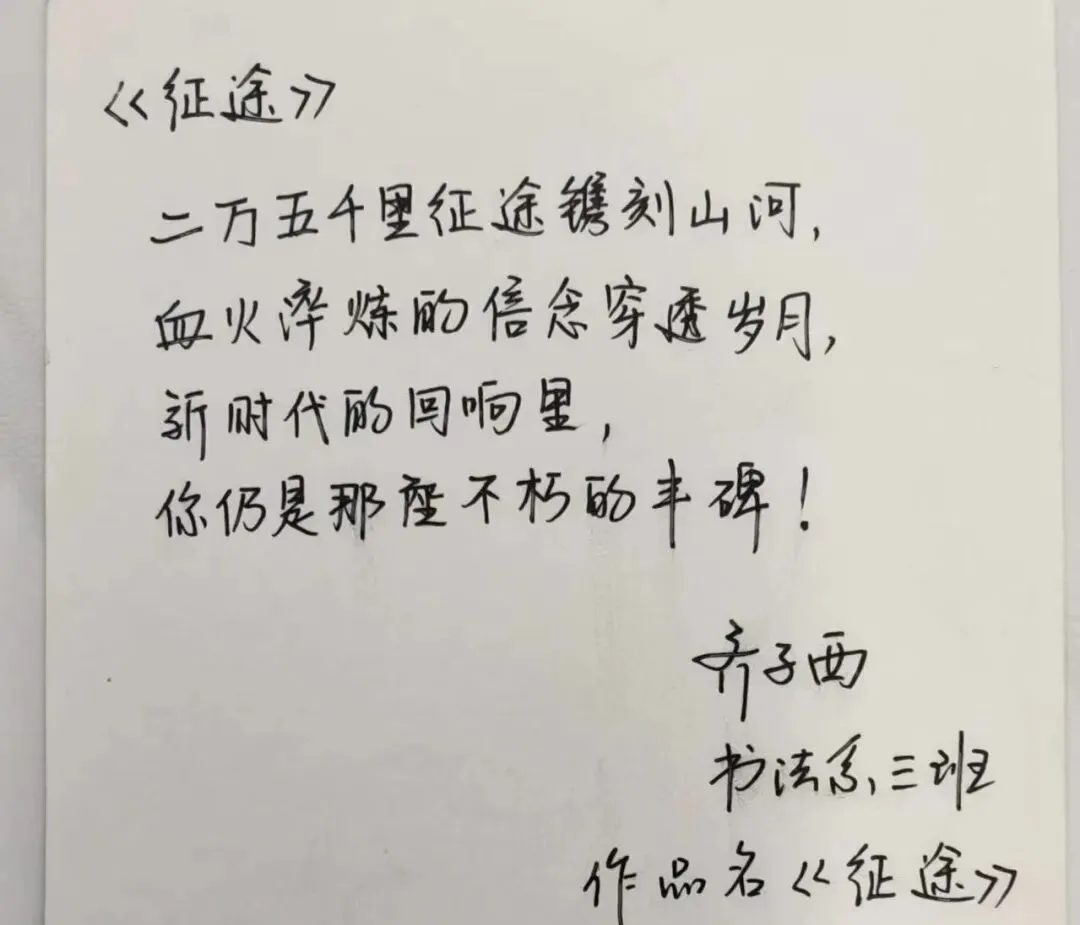 《征途》
二万五千里征途镌刻山河,
血火淬炼的信念穿透岁月,
新时代的回响里,
你仍是那座不朽的丰碑!
齐子西
书法系,三班
作品名《征途》